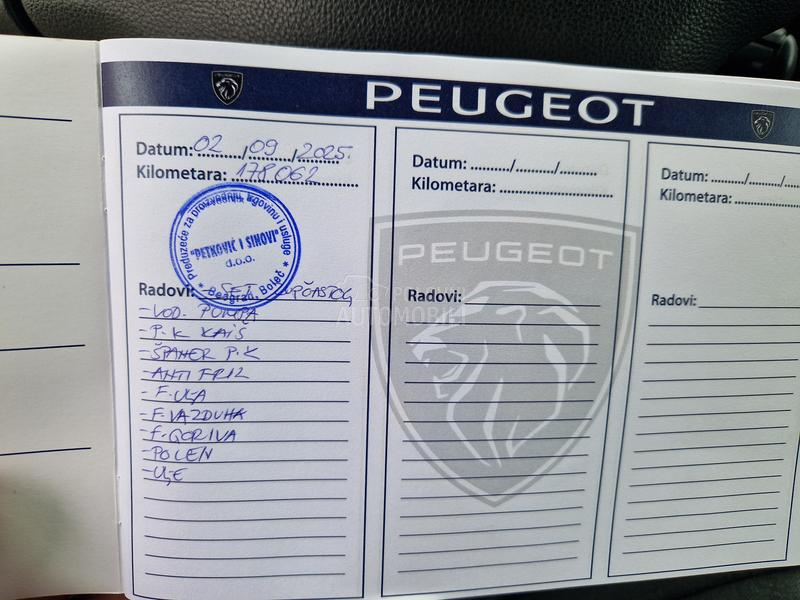 PEUGEOT
Datum: 02/09/2025.
Kilometara: 178062
Preduzeće za proizvodnju, trgovinu i usluge
"PETKOVIĆ I SINOVI"
d.o.o.
* Beograd, Boleč *
Radovi: - SET ZUPČASTOG
- VOD. PUMPA
- P.K KAIŠ
- ŠPANER P.K
- ANTI FRIZ
- F. ULA
- F. VAZDUHA
- F. GORIVA
- POLEN
- ULJE
Datum: ........../........../..........
Kilometara: ..............................
PEUGEOT
Radovi:
Datum: ........../........../..........
Kilometara: ..............................
Radovi:
POLOVNI
AUTOMOBILI